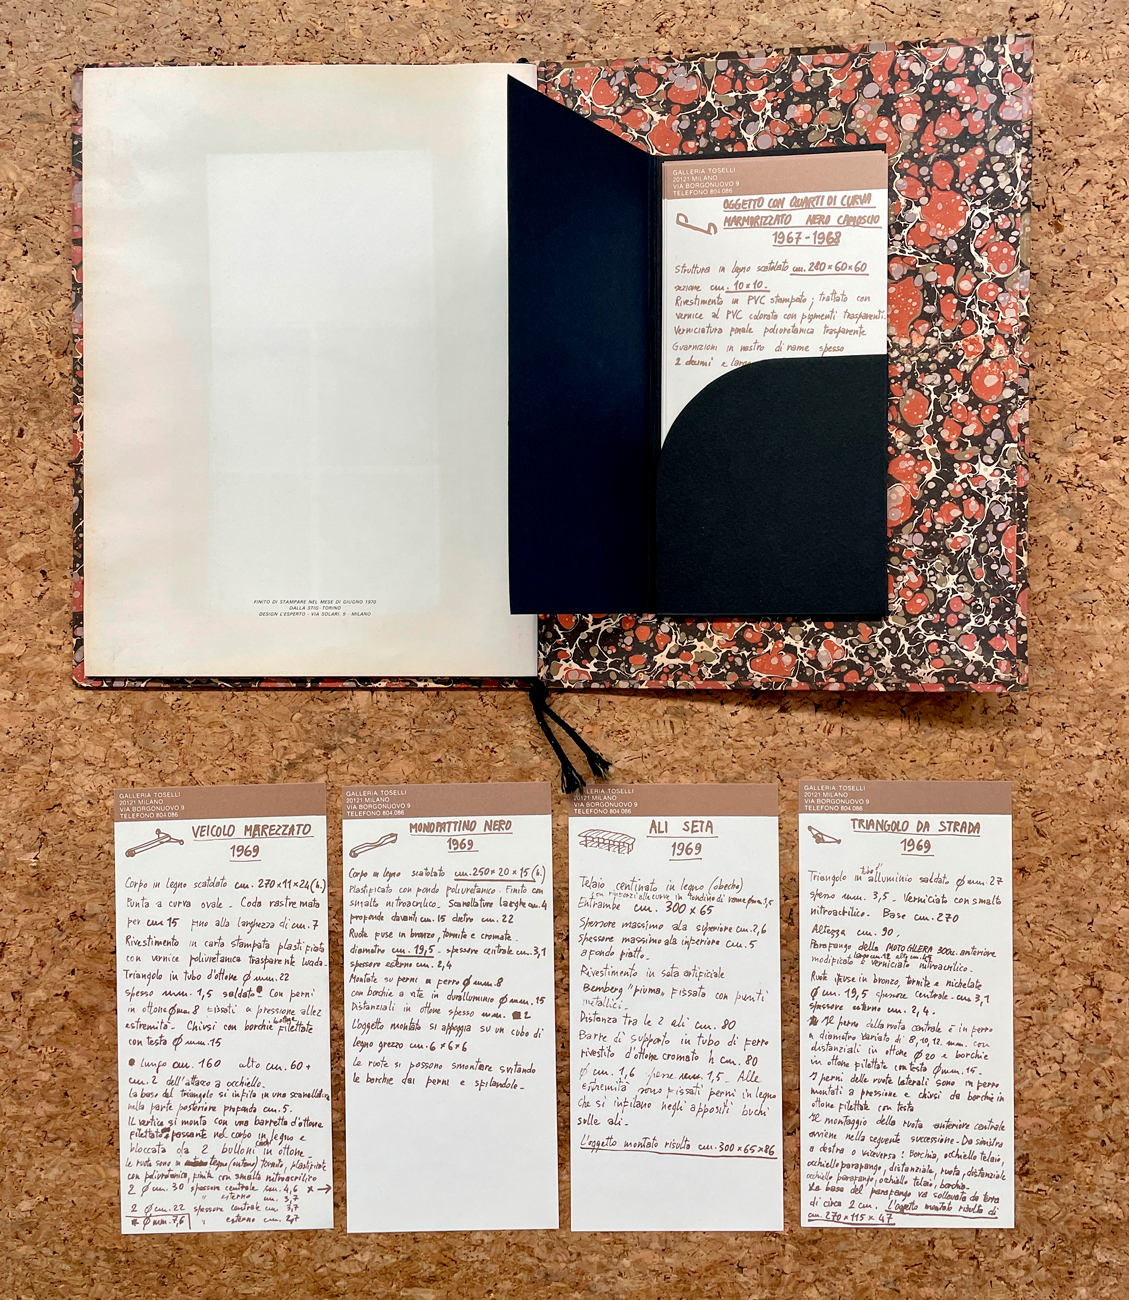 GALLERIA TOSELLI
20121 MILANO
VIA BORGONUOVO 9
TELEFONO 804.086
OGGETTO CON QUARTI DI CURVA
MARMORIZZATO NERO CAMOSCIO
1967-1968
Struttura in legno scatolato cm. 280×60×60
sezione cm. 10×10.
Rivestimento in PVC stampato; trattato con
vernice al PVC colorata con pigmenti trasparenti.
Verniciatura finale poliuretanica trasparente
Guarnizioni in nastro di rame spesso
2 decimi e larg
FINITO DI STAMPARE NEL MESE DI GIUGNO 1970
DALLA STIG - TORINO
DESIGN L'ESPERTO - VIA SOLARI, 9 - MILANO
GALLERIA TOSELLI
20121 MILANO
VIA BORGONUOVO 9
TELEFONO 804.086
VEICOLO MAREZZATO
1969
Corpo in legno scatolato cm. 270×11×24(h.)
Punta a curva ovale. Coda rastremata
per cm 15 fino alla larghezza di cm. 7
Rivestimento in carta stampata plastificata
con vernice poliuretanica trasparente lucida.
Triangolo in tubo d'ottone Ø mm. 22
spesso mm. 1,5 saldato con perni
in ottone Ø mm. 8 fissati a pressione alle
estremità. Chiusi con borchie filettate
con testa Ø mm. 15
lungo cm. 160 alto cm. 60 +
cm. 2 dell'attacco a occhiello.
La base del triangolo si infila in una scanellatura
nella parte posteriore profonda cm. 5.
Il vertice si monta con una barretta d'ottone
filettata passante nel corpo in legno e
bloccata da 2 bulloni in ottone.
Le ruote sono in legno (ontano) tornito, plastificate
con poliuretanica, finite con smalto nitroacrilico
2 Ø cm. 30 spessore centrale cm. 4,6 × →
" esterno cm. 3,7
2 Ø cm. 22 spessore centrale cm. 3,7
Ø mm. 7,6 " esterno cm. 2,7
GALLERIA TOSELLI
20121 MILANO
VIA BORGONUOVO 9
TELEFONO 804.086
MONOPATTINO NERO
1969
Corpo in legno scatolato cm. 250×20×15(h.)
Plastificato con fondo poliuretanico. Finito con
smalto nitroacrilico. Scanellature larghe cm. 4
profonde davanti cm. 15 dietro cm. 22
Ruote fuse in bronzo, tornite e cromate.
diametro cm. 19,5 - spessore centrale cm. 3,1
spessore esterno cm. 2,4
Montate su perni in ferro Ø mm. 8
con borchie a vite in duralluminio Ø mm. 15
Distanziali in ottone spesso mm. 2
L'oggetto montato si appoggia su un cubo di
legno grezzo cm. 6×6×6
Le ruote si possono smontare svitando
le borchie dai perni e sfilandole.
GALLERIA TOSELLI
20121 MILANO
VIA BORGONUOVO 9
TELEFONO 804.086
ALI SETA
1969
Telaio centinato in legno (obeche)
con rinforzi alle curve in tondino di rame mm. 1,5
Entrambe cm. 300×65
Spessore massimo ala superiore cm. 2,6
Spessore massimo ala inferiore cm. 5
a fondo piatto.
Rivestimento in seta artificiale
Bemberg "piuma", fissata con punti
metallici.
Distanza tra le 2 ali cm. 80
Barre di supporto in tubo di ferro
rivestito d'ottone cromato h cm. 80
Ø cm. 1,6 spesse mm. 1,5. Alle
estremità sono fissati perni in legno
che si infilano negli appositi buchi
sulle ali.
L'oggetto montato risulta cm. 300×65×86
GALLERIA TOSELLI
20121 MILANO
VIA BORGONUOVO 9
TELEFONO 804.086
TRIANGOLO DA STRADA
1969
Triangolo in tubo alluminio saldato Ø mm. 27
spesso mm. 3,5. Verniciato con smalto
nitroacrilico. Base cm. 270
Altezza cm. 90.
Parafango della MOTO GILERA 300cc. anteriore
modificato largo cm. 12 alto cm. 47 e verniciato nitroacrilico.
Ruote fuse in bronzo tornite e nichelate
Ø cm. 19,5 spessore centrale cm 3,1
spessore esterno cm. 2,4.
Il perno della ruota centrale è in ferro
a diametro variato di 8, 10, 12 mm. con
distanziali in ottone Ø 20 e borchie
in ottone filettate con testa Ø mm. 15.
I perni delle ruote laterali sono in ferro
montati a pressione e chiusi da borchie in
ottone filettate con testa
Il montaggio della ruota anteriore centrale
avviene nella seguente successione. Da sinistra
a destra o viceversa: Borchia, occhiello telaio,
occhiello parafango, distanziale, ruota, distanziale
occhiello parafango, occhiello telaio, borchia.
La base del parafango va sollevata da terra
di circa 2 cm. L'oggetto montato risulta di
cm. 270×115×47